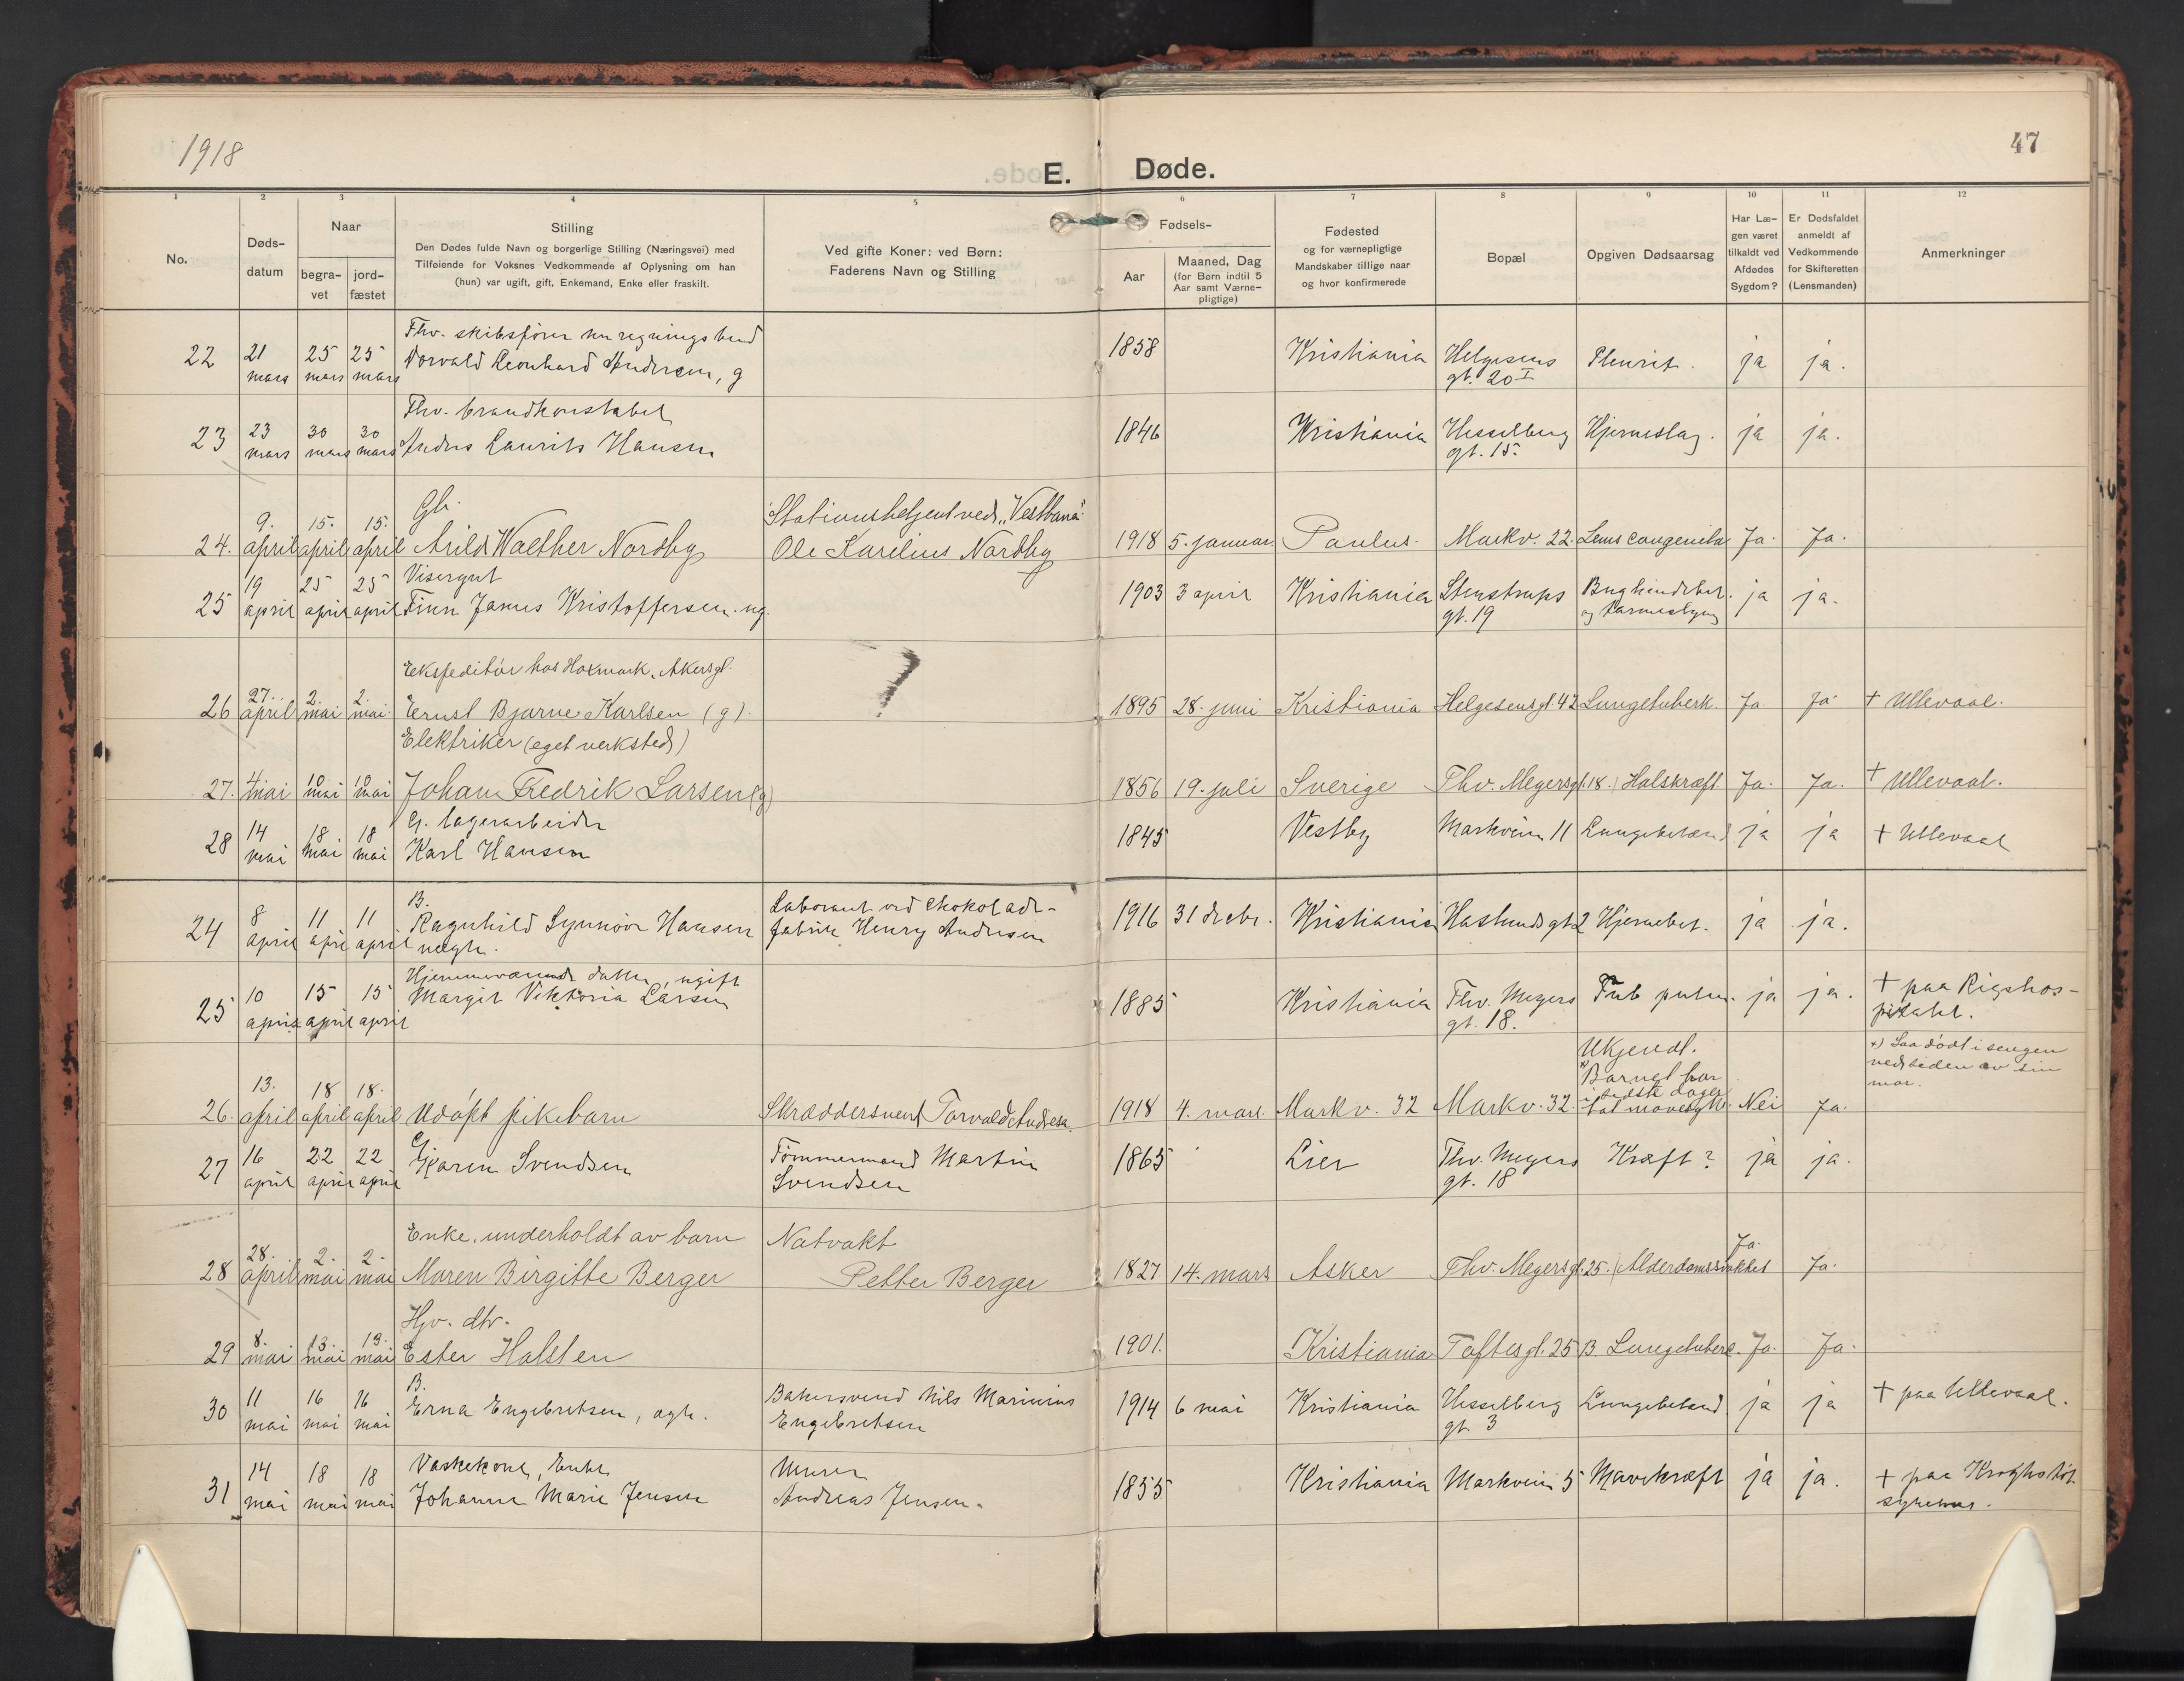 1918
47
E. Døde.
1 2 3 4 5 6 7 8 9 10 11 12
No.
Døds-
datum
Naar
begra-
vet
jord-
fæstet
Stilling
Den Dødes fulde Navn og borgerlige Stilling (Næringsvei) med
Tilføiende for Voksnes Vedkommende af Oplysning om han
(hun) var ugift, gift, Enkemand, Enke eller fraskilt.
Ved gifte Koner: ved Børn:
Faderens Navn og Stilling
Fødsels-
Aar
Maaned, Dag
(for Børn indtil 5
Aar samt Værne-
pligtige)
Fødested
og for værnepligtige
Mandskaber tillige naar
og hvor konfirmerede
Bopæl
Opgiven Dødsaarsag
Har Læ-
gen været
tilkaldt ved
Afdødes
Sygdom?
Er Dødsfaldet
anmeldt af
Vedkommende
for Skifteretten
(Lensmanden)
Anmerkninger
Fhv. skibsfører nu regningsbud
22 21 mars 25 mars 25 mars Torvald Leonhard Andersen, g 1858 Kristiania Helgesens gt. 20 I Pleurit. ja ja.
Fhv. brandkonstabel
23 23 mars 30 mars 30 mars Anders Laurits Hansen 1846 Kristiania Hesselberg gt. 15. Hjerneslag. ja ja.
Gb. Stationsbetjent ved "Vestbana"
24. 9. april 15. april 15. april Arild Walther Nordby Ole Karelius Nordby 1918 5. januar. Paulus. Markv. 22. Lues congenita Ja. Ja.
Visergut
25 19 april 25 april 25 april Finn James Kristoffersen. ug. 1903 3 april Kristiania Stenstrups gt. 19 Bughindebet. og ja ja.
Ekspeditør hos Hoxmark, Akersgt. ?
26 27. april 2. mai 2. mai Ernst Bjarne Karlsen (g). 1895 28. juni Kristiania Helgesensgt. 42 Lungetuberk. Ja. Ja + Ullevaal.
Elektriker (eget verksted)
27. 4 mai 10 mai 10 mai Johan Fredrik Larsen (g) 1856 19. juli Sverige Thv. Meyersgt. 18. Halskræft. Ja. Ja. + Ullevaal.
G. lagerarbeider
28 14 mai 18 mai 18 mai Karl Hansen 1845 Vestby Markveien 11 Lungebetænd ja ja + Ullevaal
B. Laborant ved chokolade-
24 8 april 11 april 11 april Ragnhild Synnøve Hansen uegte. fabrik Henry Andresen 1916 31 decbr. Kristiania Haslunds gt 2 Hjernebet. ja ja.
Hjemmeværende datter, ugift
25 10 april 15 april 15 april Margit Viktoria Larsen 1885 Kristiania Thv. Meyers gt. 18. Tub pulm. ja ja. + paa Rigshos-
pitalet.
Ukjendt.
x) Barnet har
i sidste dager
hat mavesyke.
x) Laa dødt i sengen
ved siden av sin
mor.
26. 13. april 18 april 18. april Udøpt pikebarn Skræddersvend Torvald Andresen. 1918 4. mars. Markv. 32 Markv. 32. Nei Ja.
27 16 april 22 april 22 april G Karen Svendsen Tømmermand Martin Svendsen 1865 Lier Thv. Meyers gt. 18 Kræft? ja ja.
Enke, underholdt av barn Natvakt
28 28. april 2. mai 2. mai Maren Birgitte Berger Petter Berger 1827 14. mars Asker Thv. Meyersgt. 25. Alderdomssvakhet Ja. Ja.
Hjv. dtr.
29 8. mai 13. mai 13. mai Ester Halsten 1901. Kristiania Toftesgt. 25 B. Lungetuberk. Ja. Ja.
B.
30 11 mai 16 mai 16 mai Erna Engebretsen, egte. Bakersvend Nils Marinius Engebretsen 1914 6 mai Kristiania Hesselberg gt. 3 Lungebetænd. ja ja + paa Ullevaal.
Vaskekone, Enke Murer
31 14 mai 18 mai 18 mai Johanne Marie Jensen Andreas Jensen. 1855 Kristiania Markveien 5 Mavekræft ja ja. + paa Kroghstøt.
sykehus.